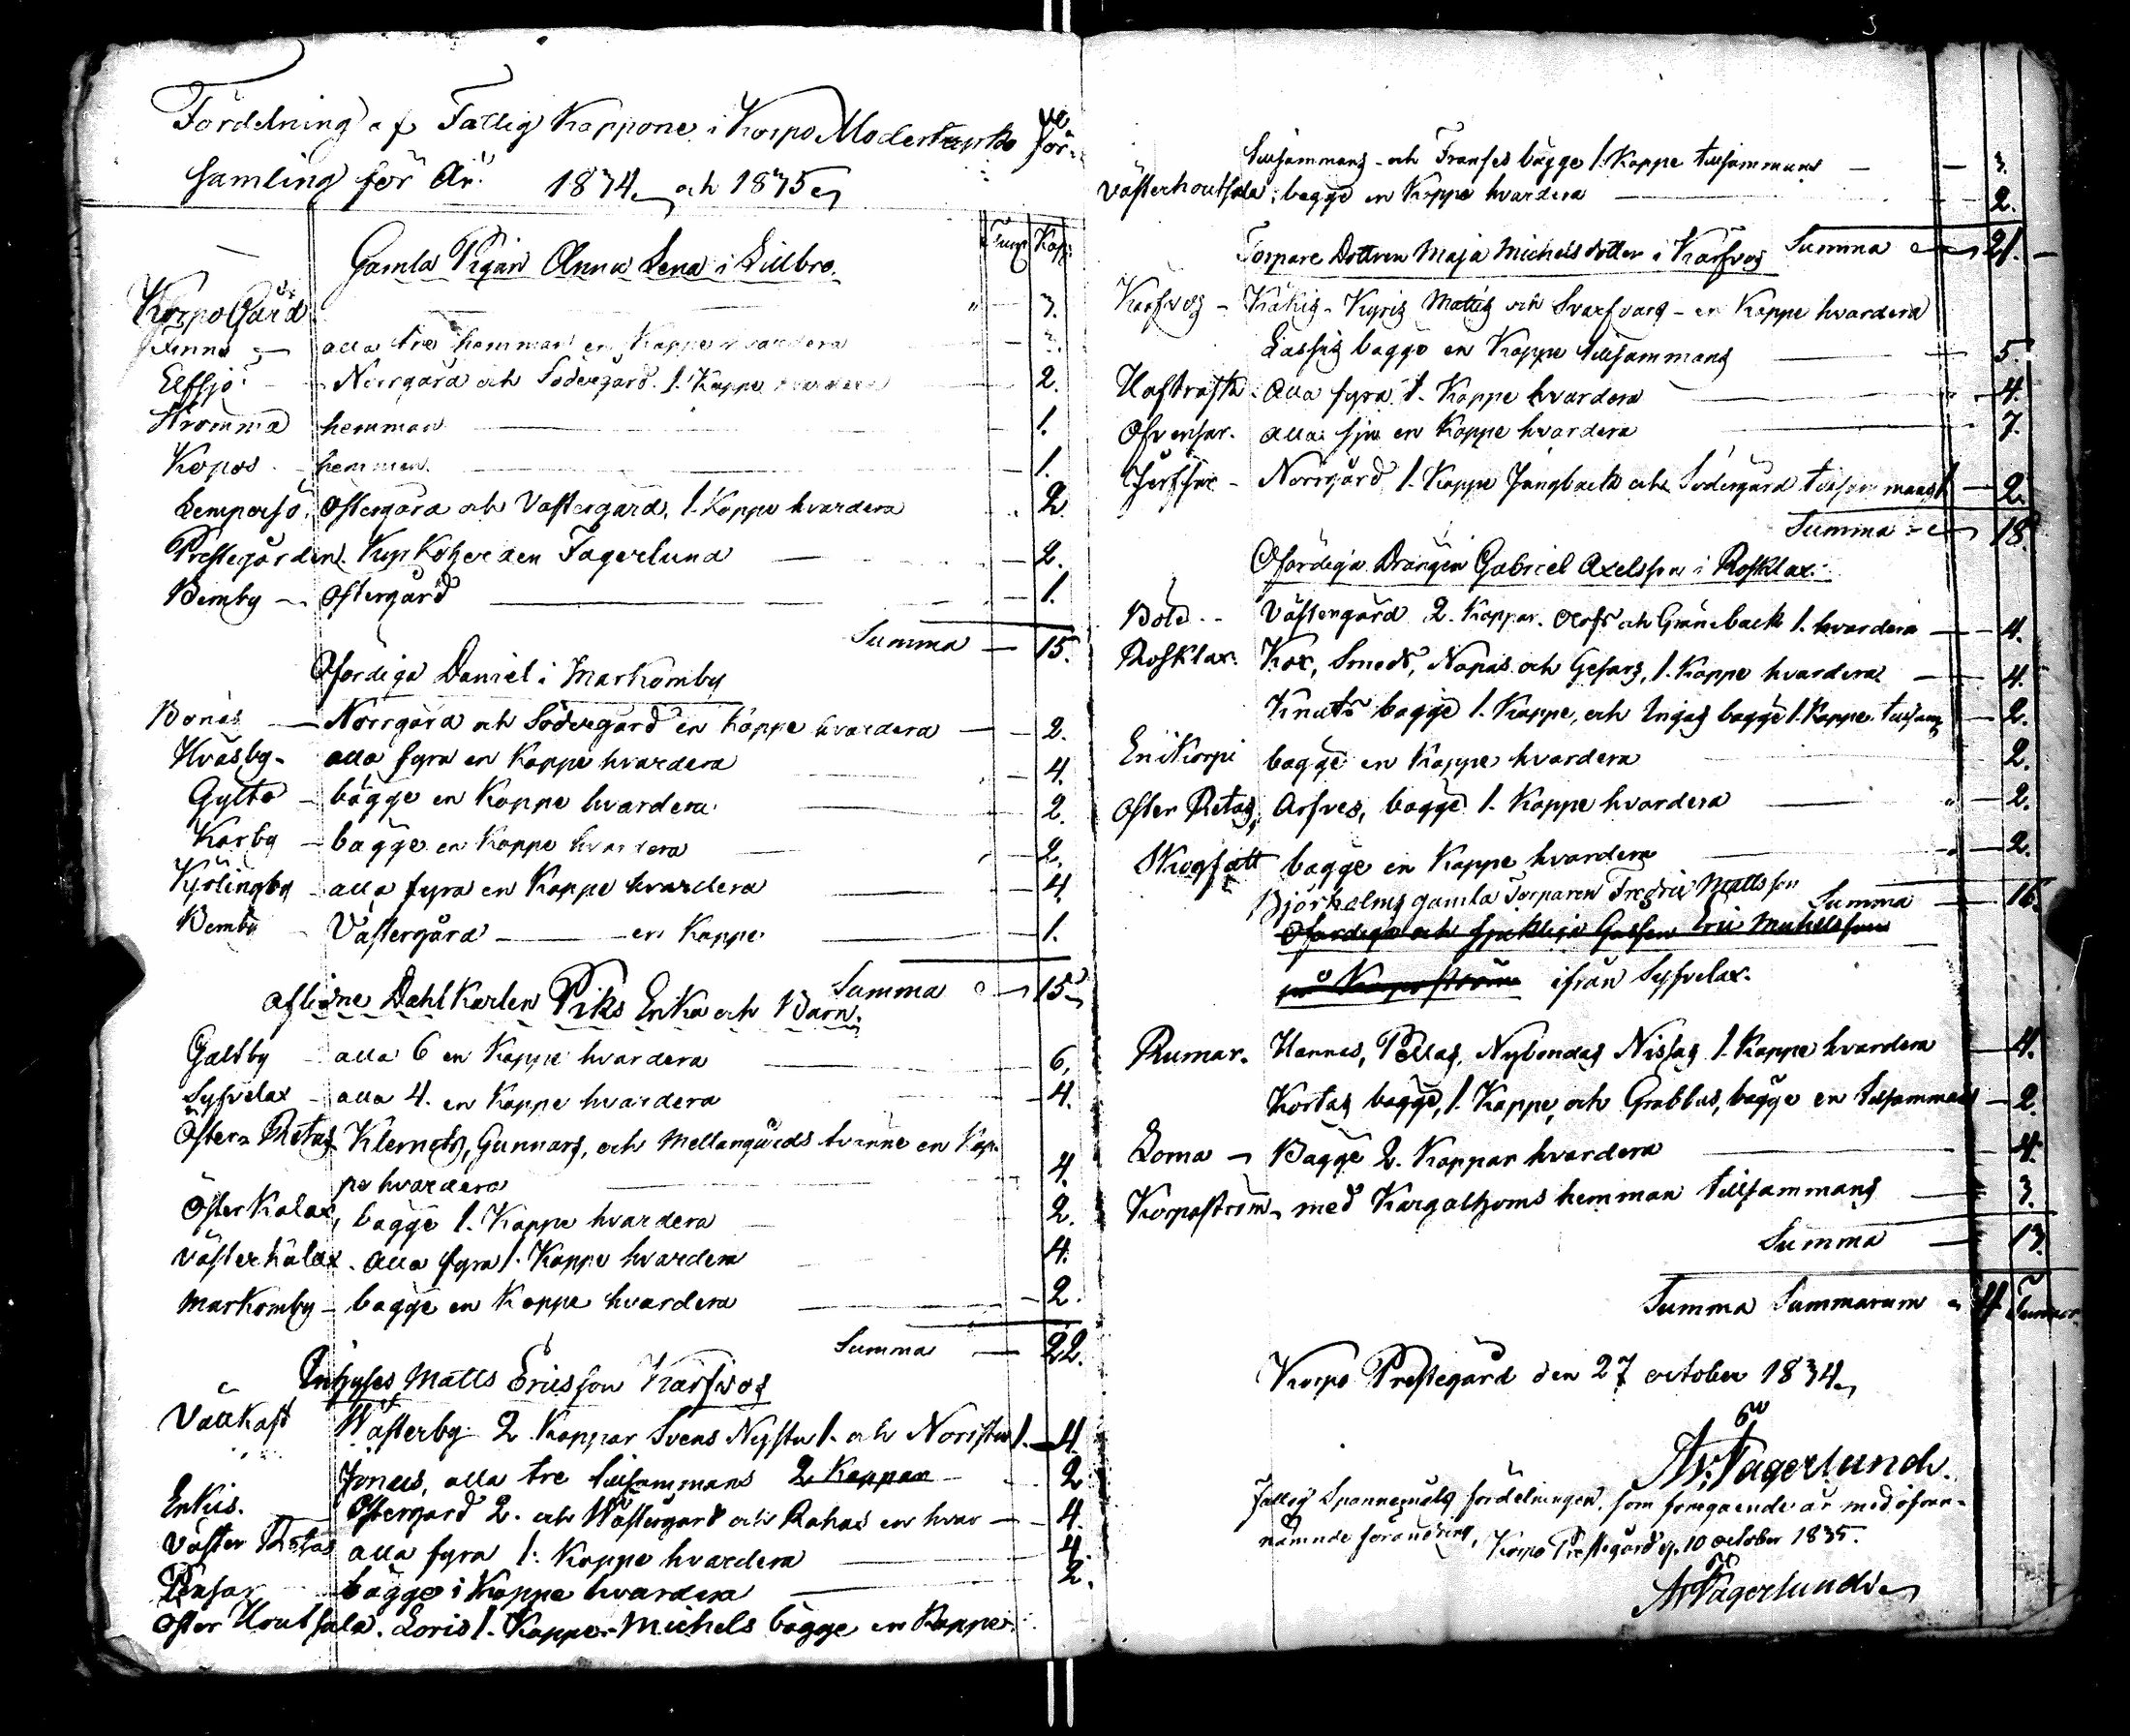 Fördelning af Fattig Kapporne i Korpo Moderkyrko för-
samling för År 1834 och 1835
Tunn Kap:
Gamla Pigan Anna Lena i Lillbro.
KorpoGård " 3.
Finnö alla tre hemman en Kappe hvardera 3.
Elfsjö Norrgård och Södergård 1. Kappe hvardera 2.
Kromma hemman 1.
Kopos hemman 1.
Lempersö Östergård och Västergård, 1. Kappe hvardera 2
Prestegården. Kyrkoherden Fagerlund 2.
Bemby Östergård 1.
Summa 15.
Ofärdiga Daniel i Markomby
Bonäs Norrgård och Södergård en kappe hvardera 2.
Hväsby alla fyra en Kappe hvardera 4.
Gyltö bägge en Kappe hvardera 2.
Korby bägge en Kappe hvardera 2.
Kyrlingby alla fyra en Kappe hvardera 4
Bemby Västergård en Kappe 1.
Summa 15
Aflidne Dahlkarlen Piks Enka och Barn.
Galtby alla 6 en Kappe hvardera 6.
Syfvelax alla 4. en Kappe hvardera 4.
Öster Retas Klemets, Gunnars, och Mellangårds tvänne en Kap-
pe hvardera 4.
Österkalax, bägge 1. Kappe hvardera 2.
Västerkalax. Alla fyra 1. Kappe hvardera 4.
Markomby bägge en Kappe hvardera 2.
Summa 22.
Inhyses Matts Ericsson Kärfvos
Vattkast Wästerby 2 Kappar Svens Nystu 1. och Norrstu 1. 4
Jonas, alla tre tillsammans 2 Kappar 2
Enkis. Östergård 2. och Wästergård och Rahas en hvar 4.
Väster Retas alla fyra 1. Kappe hvardera 4.
Pensar bägge 1 Kappe hvardera 2.
Öster Houtsala. Loris 1. Kappe Michels bägge en Kappe
tillsammans och Franses bägge 1. Kappe tillsammans 3.
Västerhoutsala: bägge en Kappe hvardera 2.
Summa 21.
Torpare Dottren Maja Michelsdotter i Kärfvos
Korfvos Kåkis Kyris Mattis och Svarfvars en Kappe hvardera
Lassis bägge en Kappe tillsammans 5.
Alla fyra 1. Kappe hvardera 4.
Öfvensar. alla sju en Kappe hvardera 7.
Norrgård 1. Kappe Jungbacks och Södergård tillsammans 1 2.
Summa 18.
Ofärdiga Drängen Gabriel Axelsson i Rosklax.
Västergård 2. Kappar. Olofs och Grönback 1. hvardera 4.
Rosklax Kox, Smeds, Nopas och Gesars, 1. Kappe hvardera 4.
Knuts bägge 1. Kappe, och Ingas bägge 1. Kappe tillsam 2.
Enikorpi bägge en Kappe hvardera 2.
Öster Retas, Arfves, bägge 1. Kappe hvardera 2.
Skogfatt bägge en Kappe hvardera 2.
Björholms gamla Torparen Fredric Mattsson Summa 16.
Ofärdiga och sjukliga Gossen Eric Michelsson
på Korpoström ifrån Syfvelax.
Rumar. Hannes, Pellas, Nybondas Nissas 1. Kappe hvardera 4.
Kortas bägge, 1. Kappe, och Grabbus, bägge en tillsammans 2.
Loma Bägge 2. Kappar hvardera 4.
Korpoström med Kargalholms hemman tillsammans 3.
Summa 13.
Summa Summarum 4 Tunnor
Korpo Prestegård den 27 october 1834
A. Fagerlund.
Fattig Spannemåls fördelningen som föregående år med ofvan-
nämnde förändring, Korpo Prestegård d. 10 october 1835.
A Fagerlund